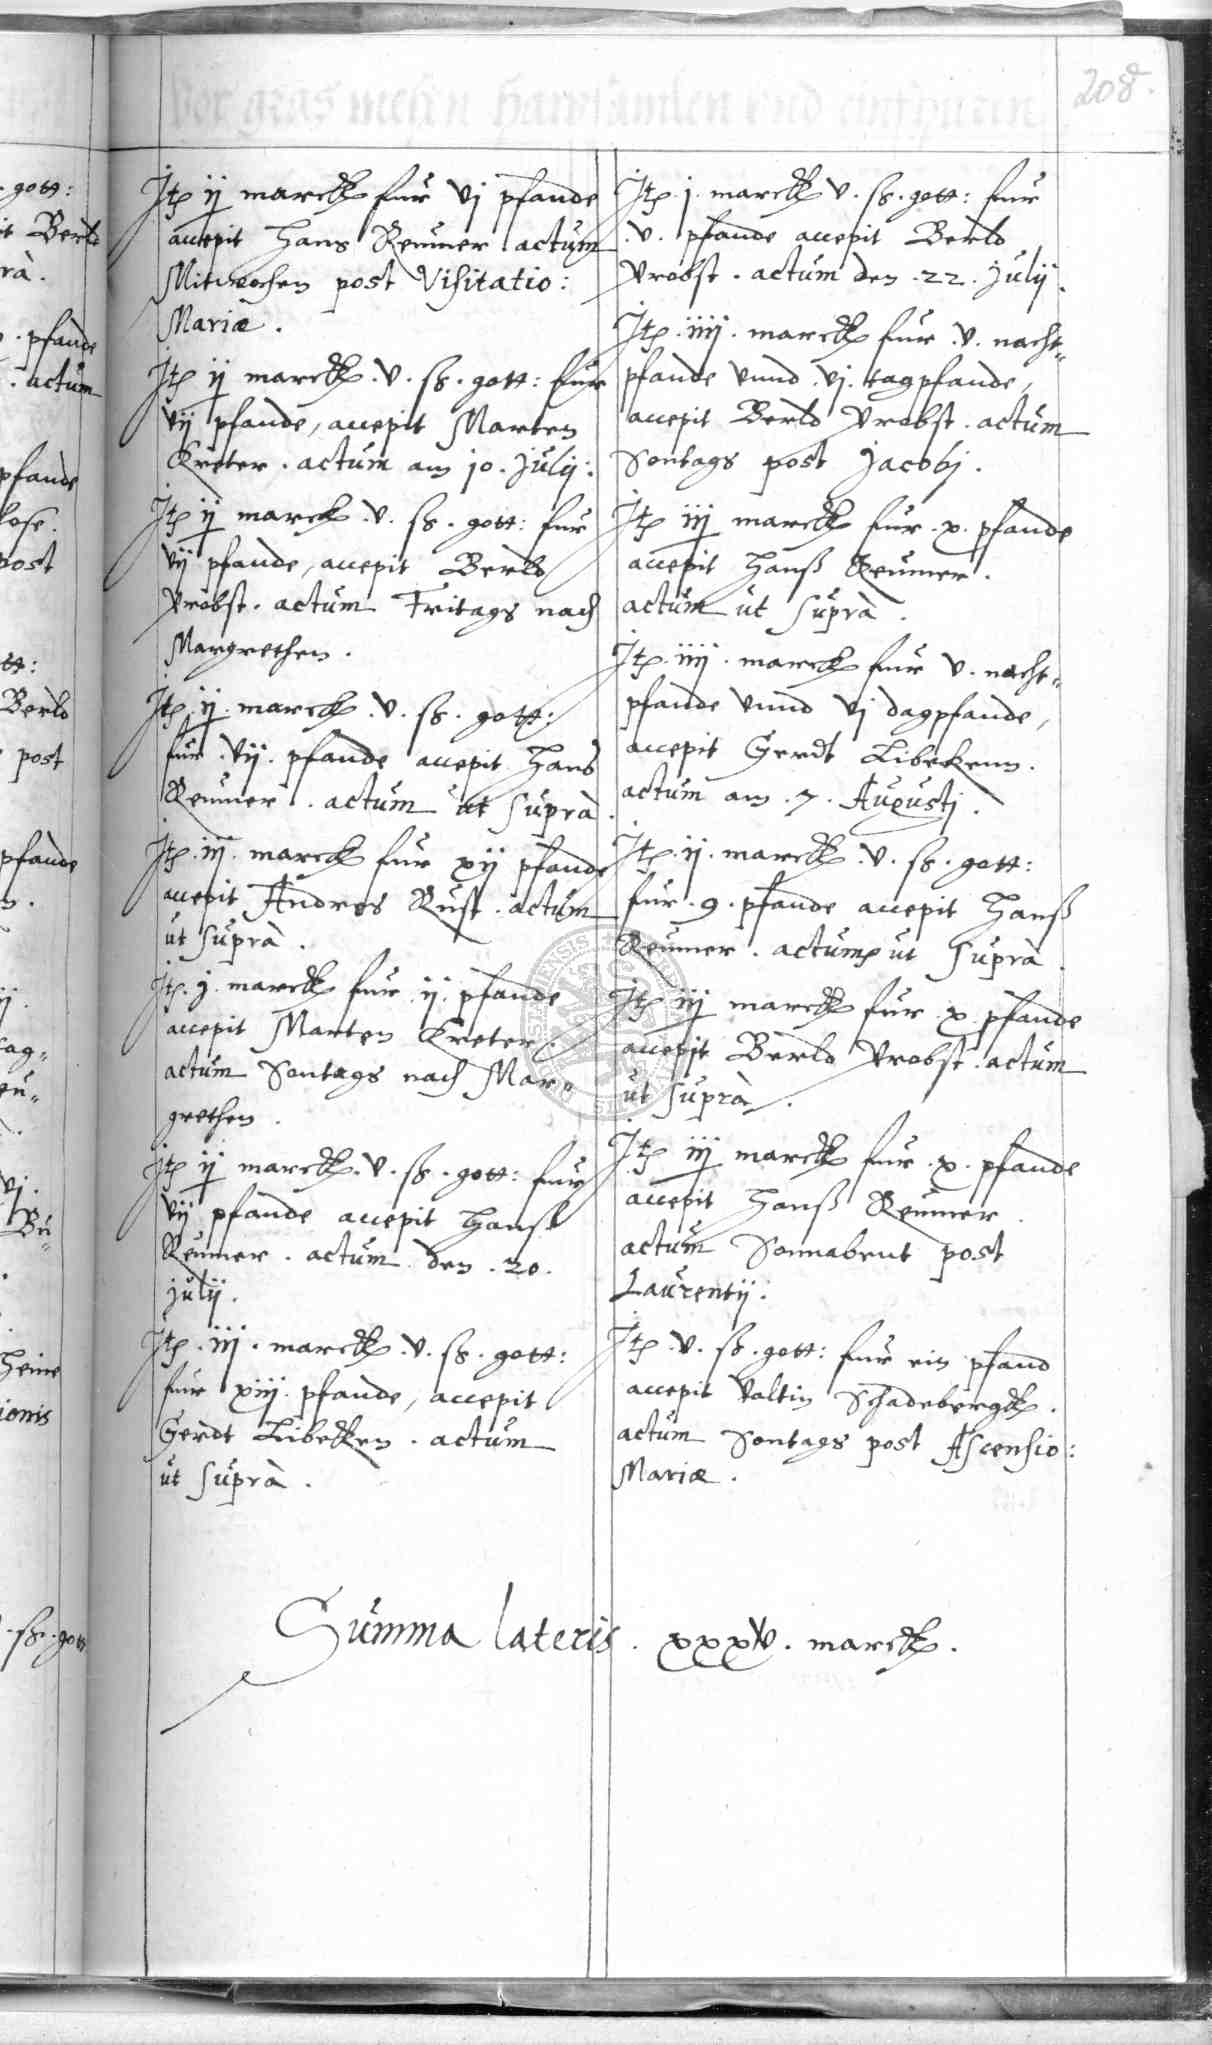 208
Itz ij marck fur vj pfande
accepit Hans Reumer actum
Mitwochen post Visitatio:
Mariæ.
Itz ij marck .v. ß. gott: fur
vij pfande, accepit Marten
Kreter . actum am 10. Julij:
Itz ij marck .v. ß. gott: fur
vij pfande, accepit Berld
Probst. actum Fritags nach
Margrethen.
Itz .ij. marck .v. ß. gott:
fur .vij. pfande accepit Hans
Reumer . actum ut Suprà.
Itz .iij. marck fur xij pfande
accepit Andres Rust . actum
ut Suprà.
Itz .j. marck fur .ij. pfande
accepit Marten Kreter.
actum Sontags nach Mar„
grethen.
Itz ij marck .v. ß. gott: fur
vij pfande accepit Hanß
Reumer . actum den .20.
Julij.
Itz .iij. marck .v. ß. gott:
fur xiij. pfande, accepit
Gerdt Libekken . actum
ut Suprà.
Itz .j. marck .v. ß. gott: fur
.v. pfande accepit Berld
Probst . actum den .22. Julij.
Itz .iiij. marck fur .v. nacht„
pfande vnnd .vj. tagpfande,
accepit Berld Probst . actum
Sontags post Jacobj.
Itz iij marck fur .x. pfande
accepit Hanß Reumer.
actum ut Suprà.
Itz .iiij. marck fur v. nacht„
pfande vnnd vj dagpfande,
accepit Gerdt Libekenn.
actum am .7. Augustj.
Itz .ij. marck .v. ß. gott:
fur .9. pfande accepit Hanß
Reumer . actum ut Suprà.
Itz iij marck fur .x. pfande
accepit Berld Probst . actum
ut Suprà.
Itz iij marck fur .x. pfande
accepit Hanß Reumer.
actum Sonnabent post
Laurentij.
Itz .v. ß. gott: fur ein pfand
accepit Valtin Schadebergk.
actum Sontags post Ascensio:
Mariæ.
Summa lateris . xxxv. marck.